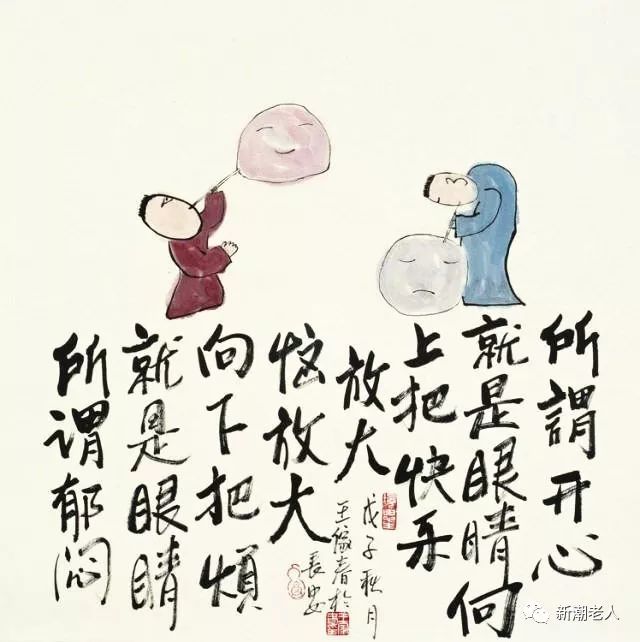 所謂开心
就是眼睛向
上把快乐
放大
所谓郁闷
就是眼睛
向下把煩
恼放大
戊子秋月
王傢春於
長安
新潮老人